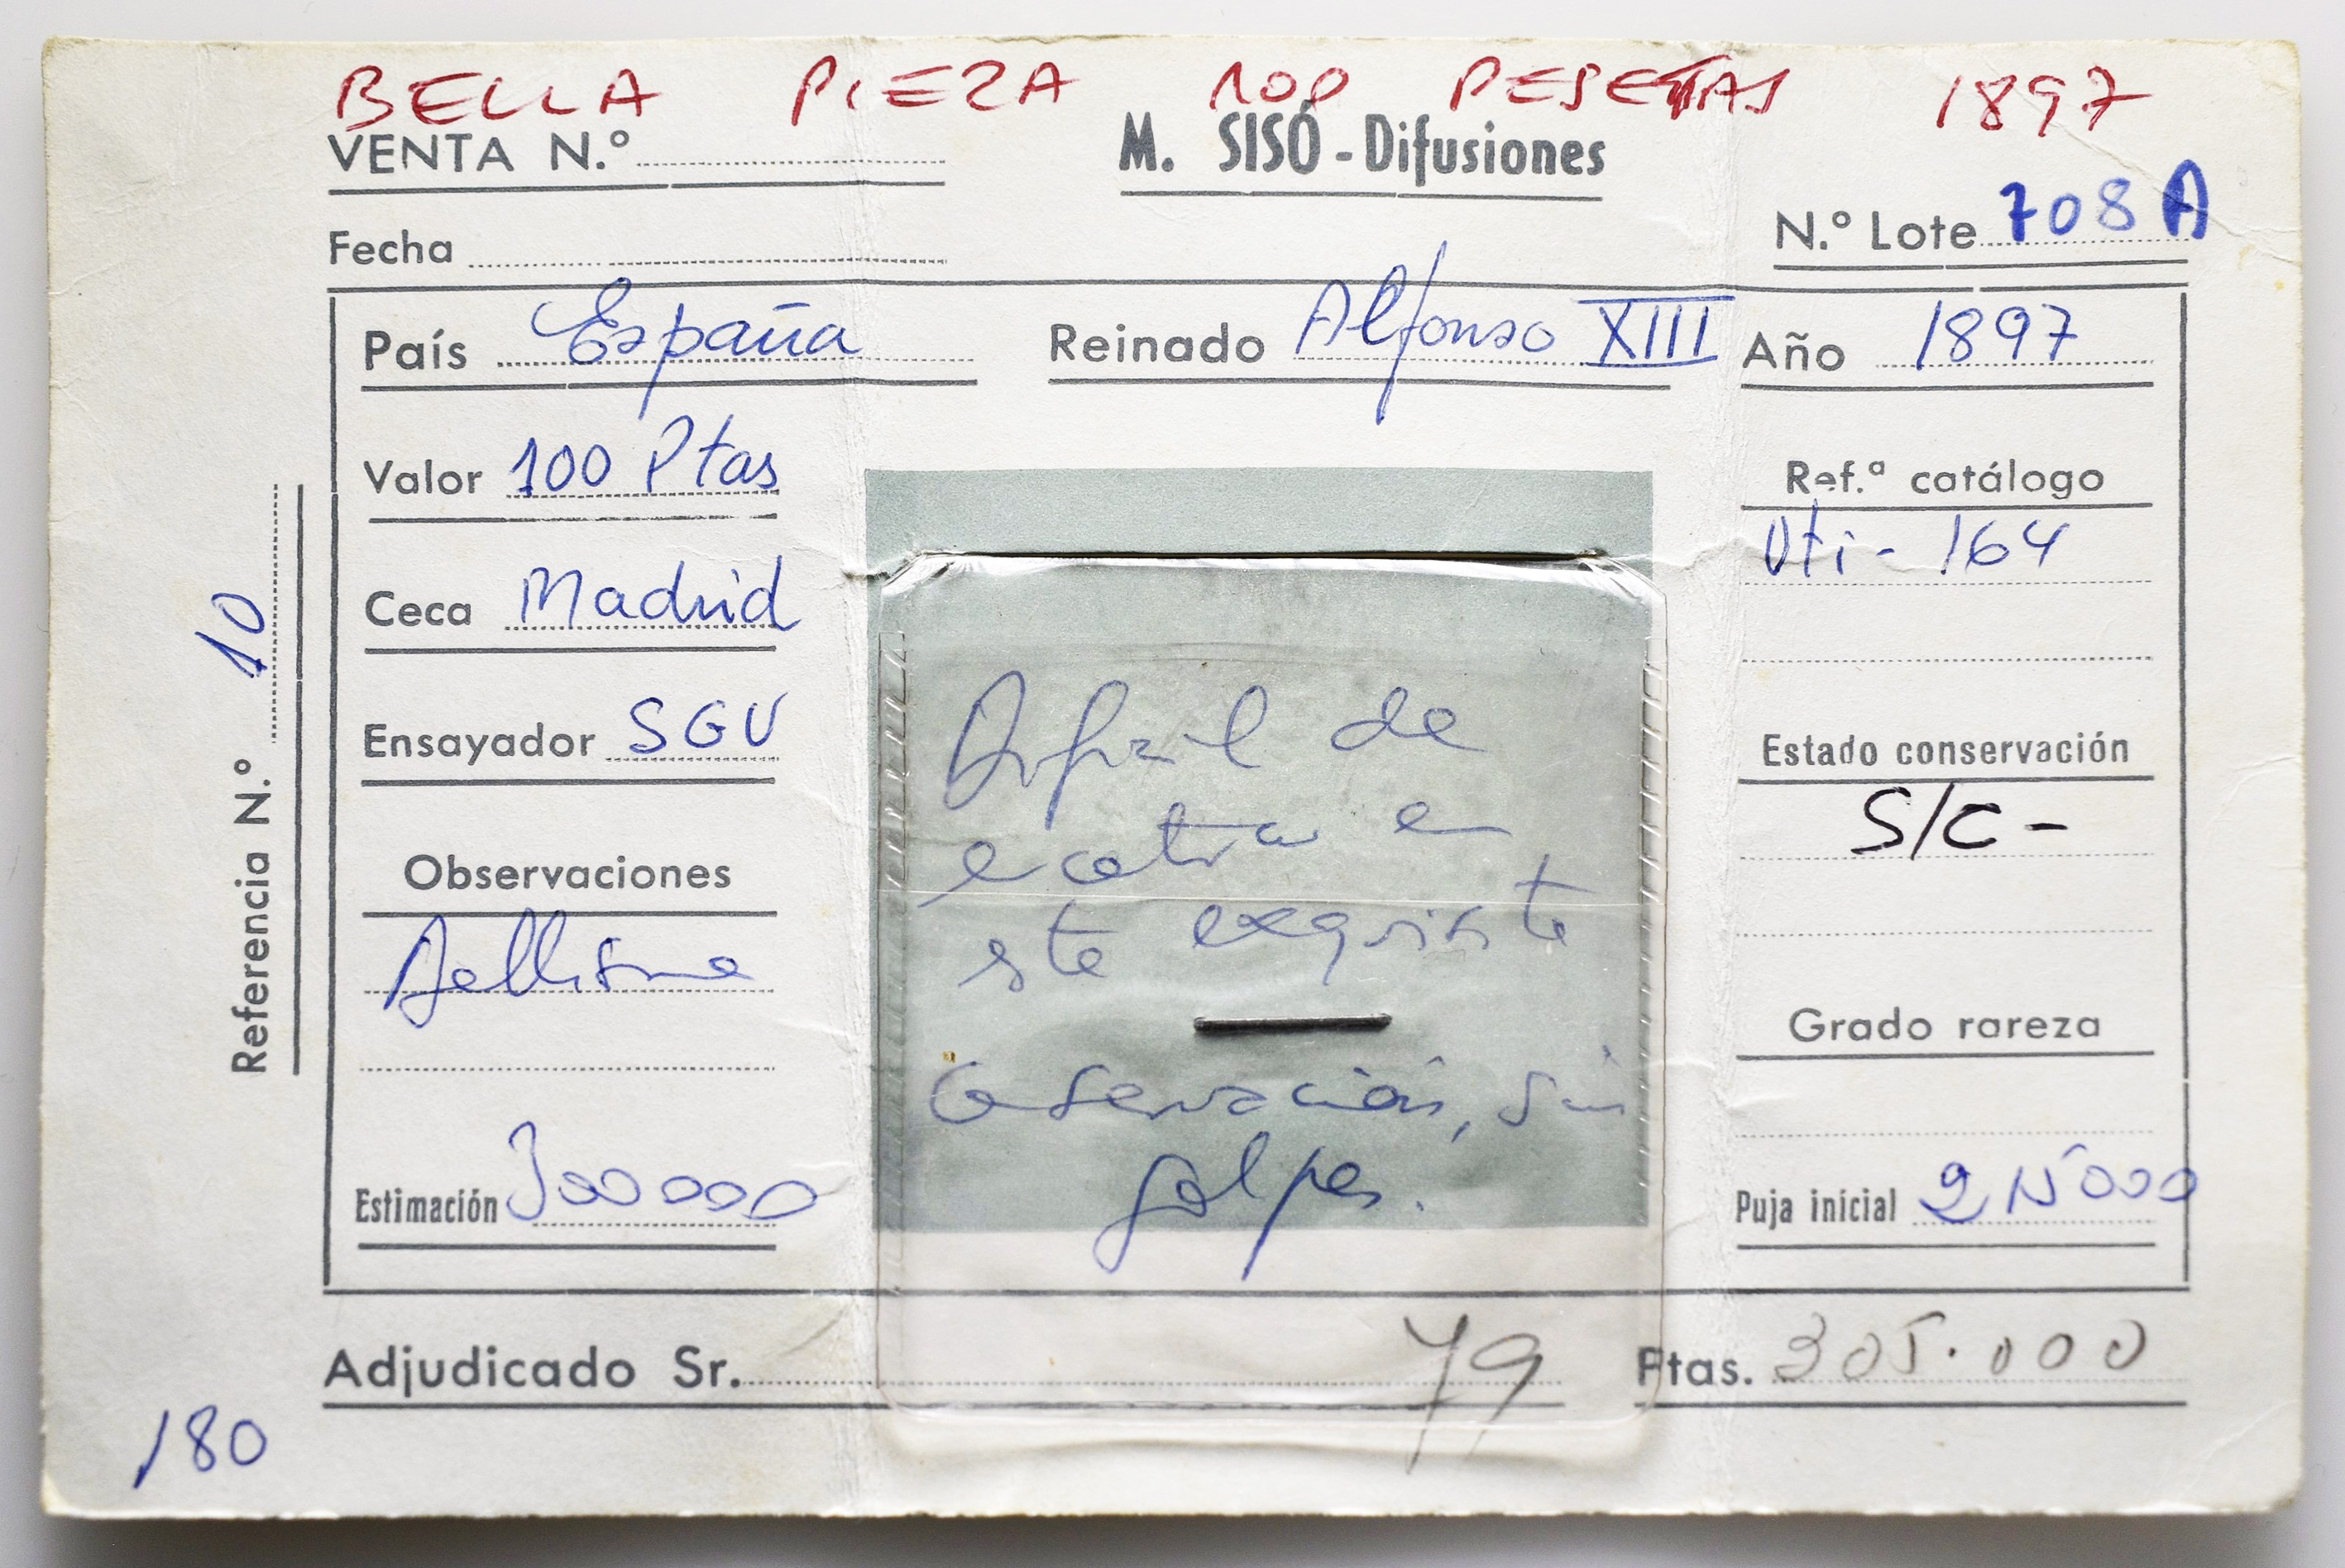 BELLA PIEZA 100 PESETAS 1897
VENTA N.º
M. SISÓ - Difusiones
Fecha
N.º Lote 708 A
País España
Reinado Alfonso XIII
Año 1897
Valor 100 Ptas
Ref.ª catálogo
Vti - 164
Ceca Madrid
Ensayador SGV
Estado conservación
S/C -
Observaciones
Bellísima
Difícil de
encontrar en
este exquisito
conservación, sin
golpes.
Grado rareza
Estimación 300000
Puja inicial 215000
Adjudicado Sr. 79
Ptas. 305.000
Referencia N.º 10
180